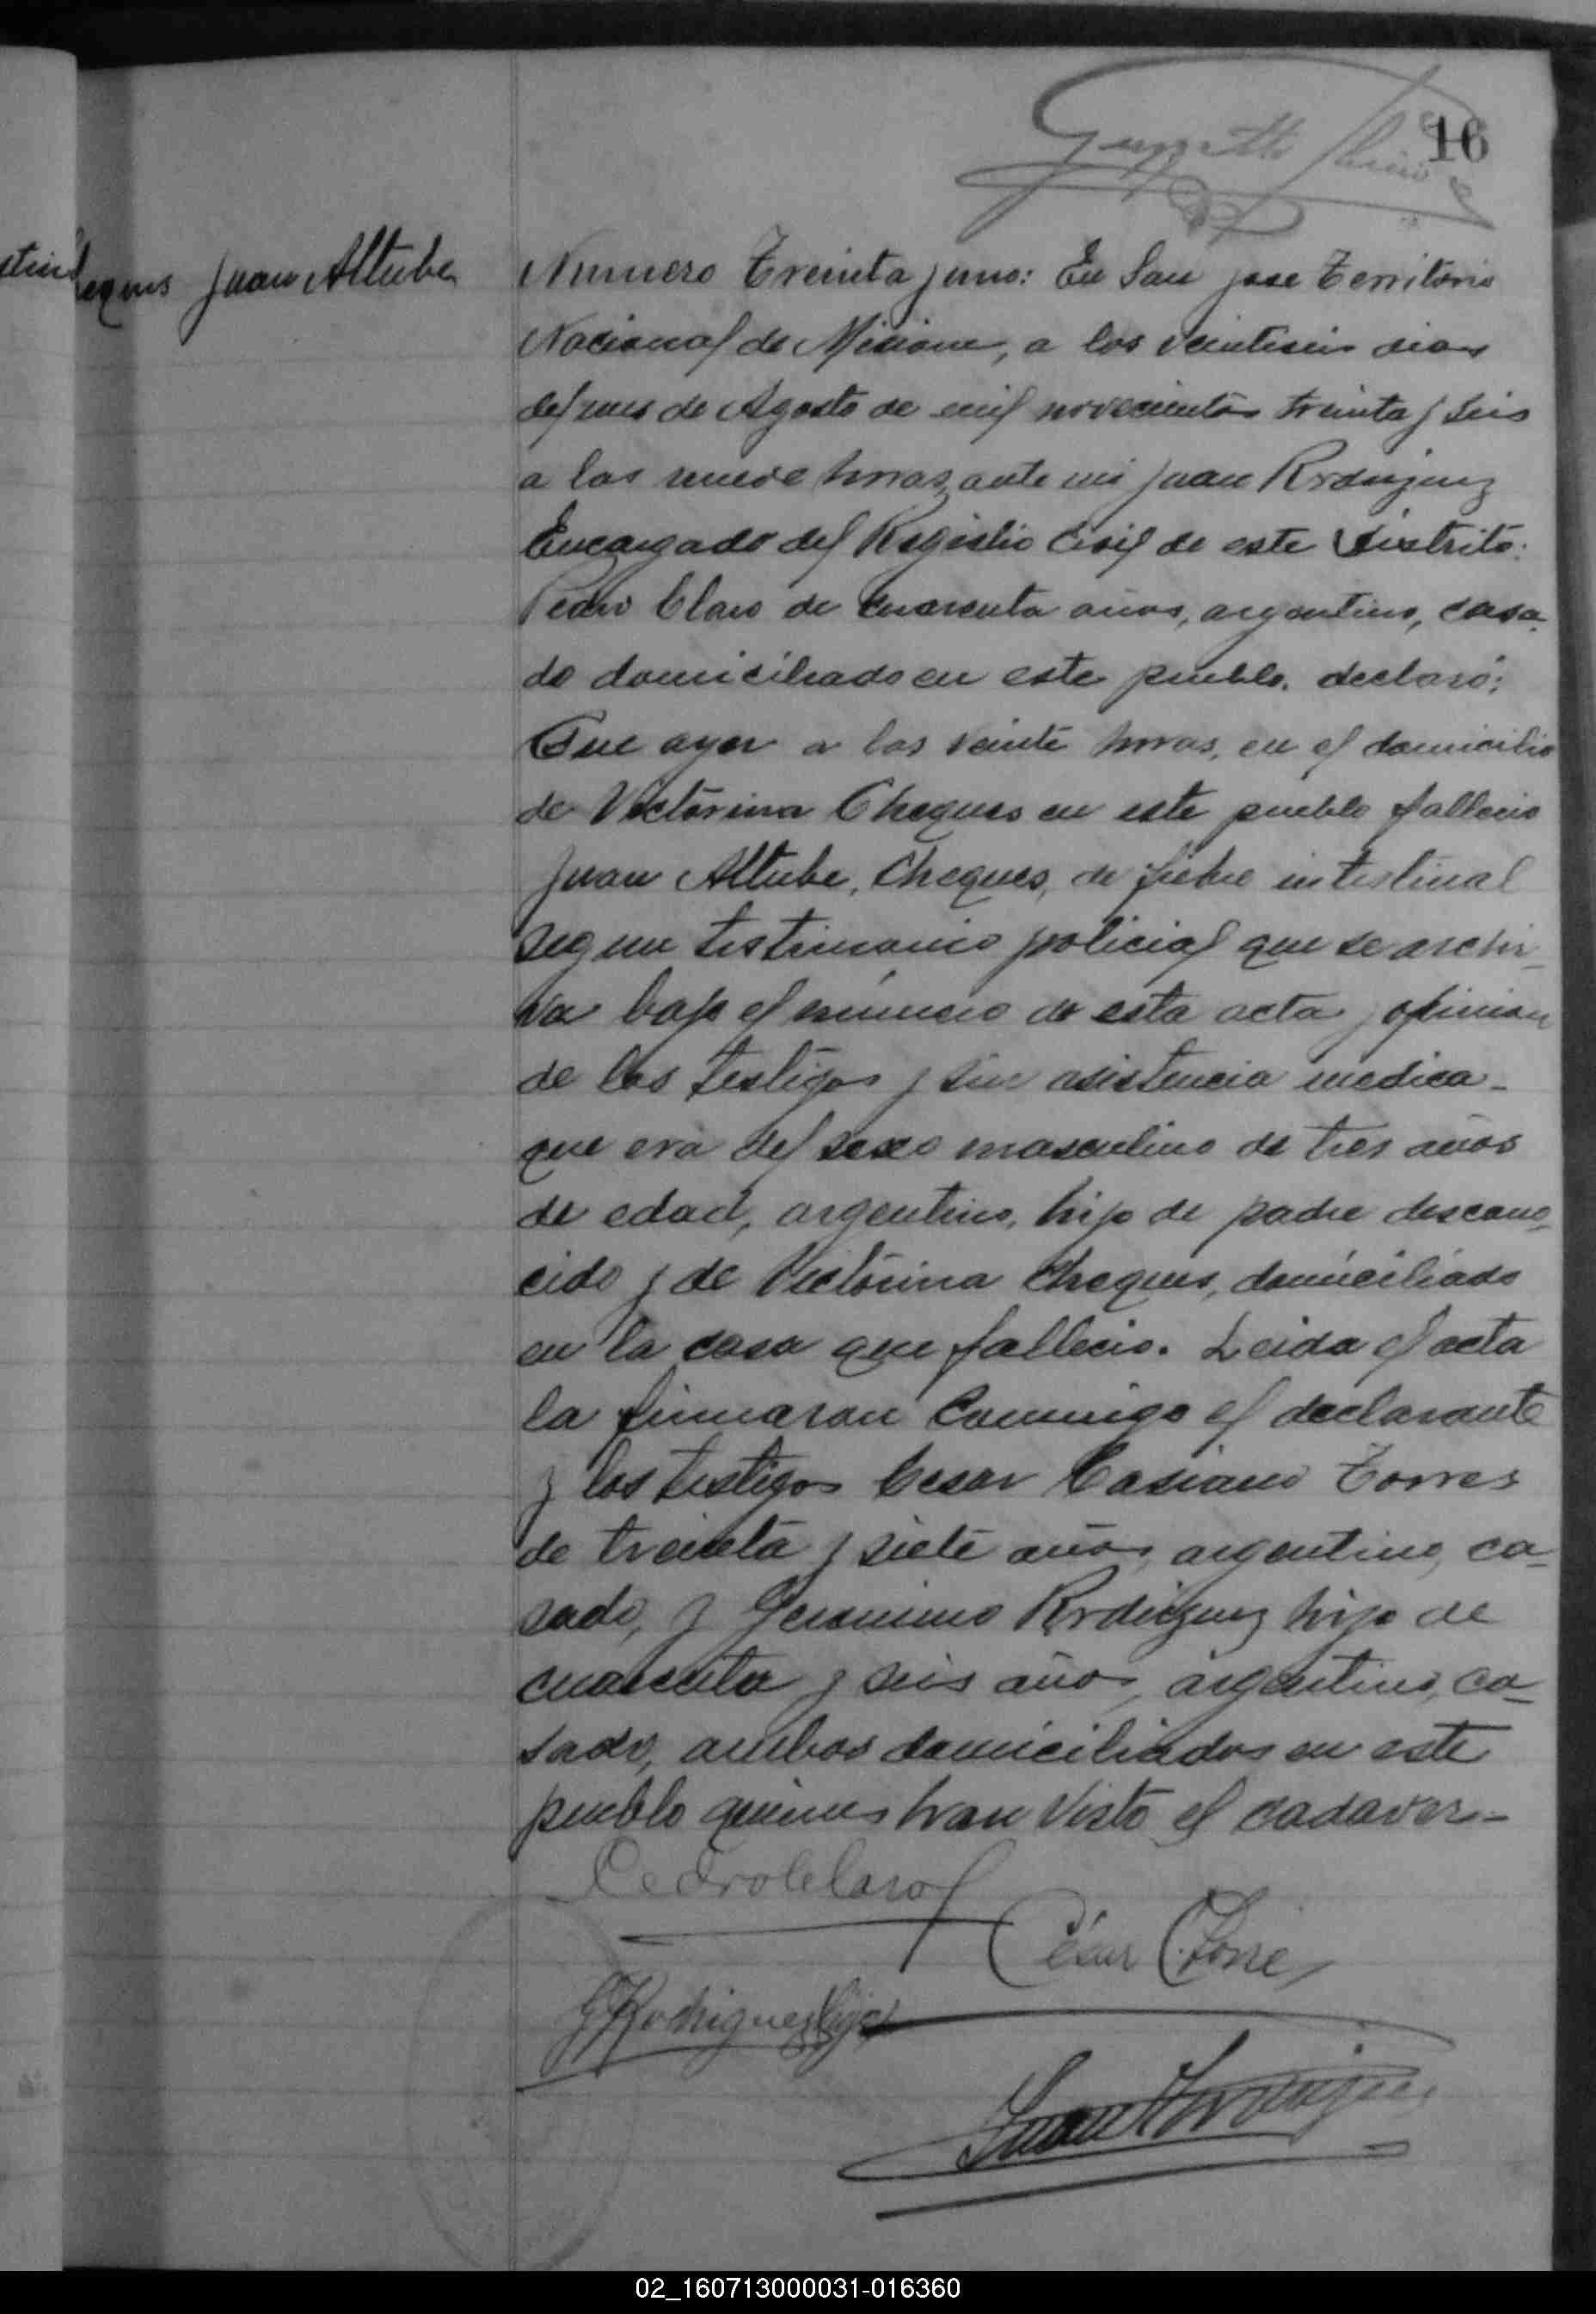 16
Juan Altube
Numero Treinta y uno: En San Jose Territorio
Nacional de Misione, a los veintiseis dias
del mes de Agosto de mil novecientos treinta y seis
a las nueve horas, ante mi Juan Rodriguez
Encargado del Registro Civil de este Distrito:
Pedro Claro de cuarenta años, argentino, casa-
do domiciliado en este pueblo, declaró:
Que ayer a las veinte horas, en el domicilio
de Victorina Cheques en este pueblo fallecio
Juan Altube, Cheques, de fiebre intestinal
segun testimonio policial que se archi-
va bajo el número de esta acta y opinion
de los testigos y sin asistencia medica-
que era del sexo masculino de tres años
de edad, argentino, hijo de padre descono-
cido y de Victorina Cheques, domiciliado
en la casa que fallecio. Leida el acta
la firmaron conmigo el declarante
y los testigos Cesar Casiano Torres
de treinta y siete años, argentino, ca-
sado, y Geronimo Rodriguez hijo de
cuarenta y seis años, argentino, ca-
sado, ambos domiciliados en este
pueblo quienes han visto el cadaver.-
Pedro Claro
César C. Torres
G Rodriguez hijo
Juan Rodriguez
02_160713000031-016360